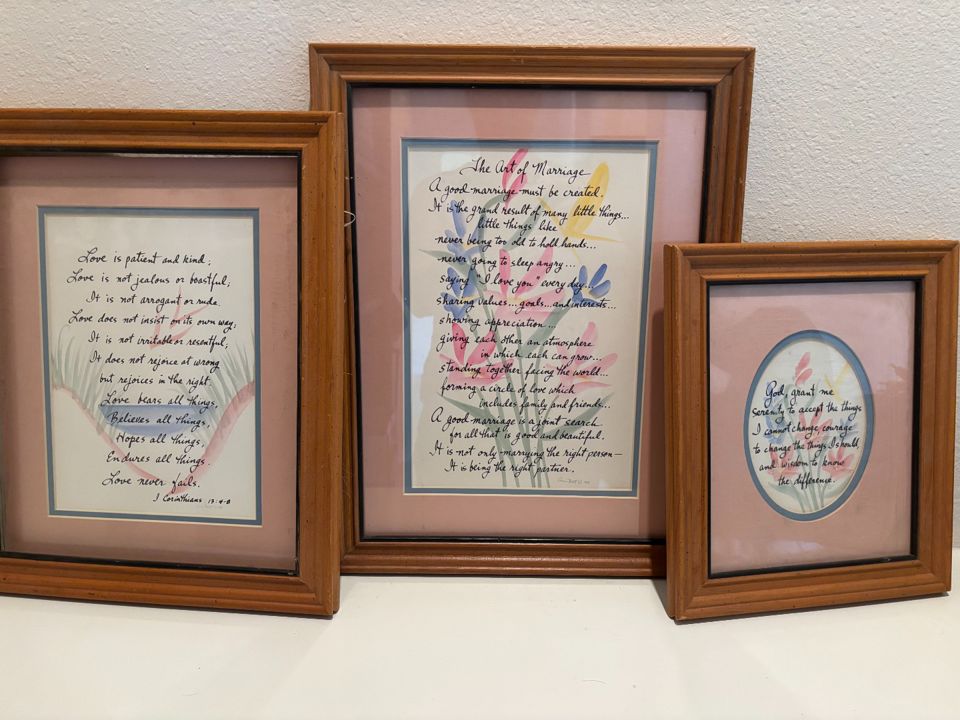 Love is patient and kind;
Love is not jealous or boastful;
It is not arrogant or rude.
Love does not insist on its own way;
It is not irritable or resentful;
It does not rejoice at wrong
but rejoices in the right.
Love bears all things,
Believes all things,
Hopes all things,
Endures all things.
Love never fails.
I Corinthians 13:4-8
The Art of Marriage
A good marriage must be created.
It is the grand result of many little things...
little things like
never being too old to hold hands...
never going to sleep angry...
saying "I love you" every day...
sharing values...goals...and interests...
showing appreciation...
giving each other an atmosphere
in which each can grow...
standing together facing the world...
forming a circle of love which
includes family and friends...
A good marriage is a joint search
for all that is good and beautiful.
It is not only marrying the right person—
It is being the right partner.
God, grant me
serenity to accept the things
I cannot change, courage
to change the things I should,
and wisdom to know
the difference.